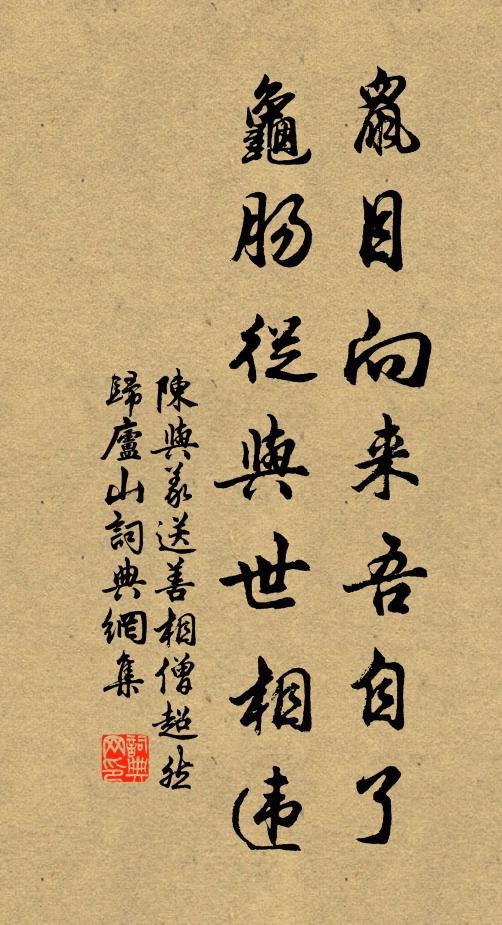 鼠目向来吾自了
龜肠從與世相违
陳與義送善相僧超然
歸廬山詞典網集
詞典网印